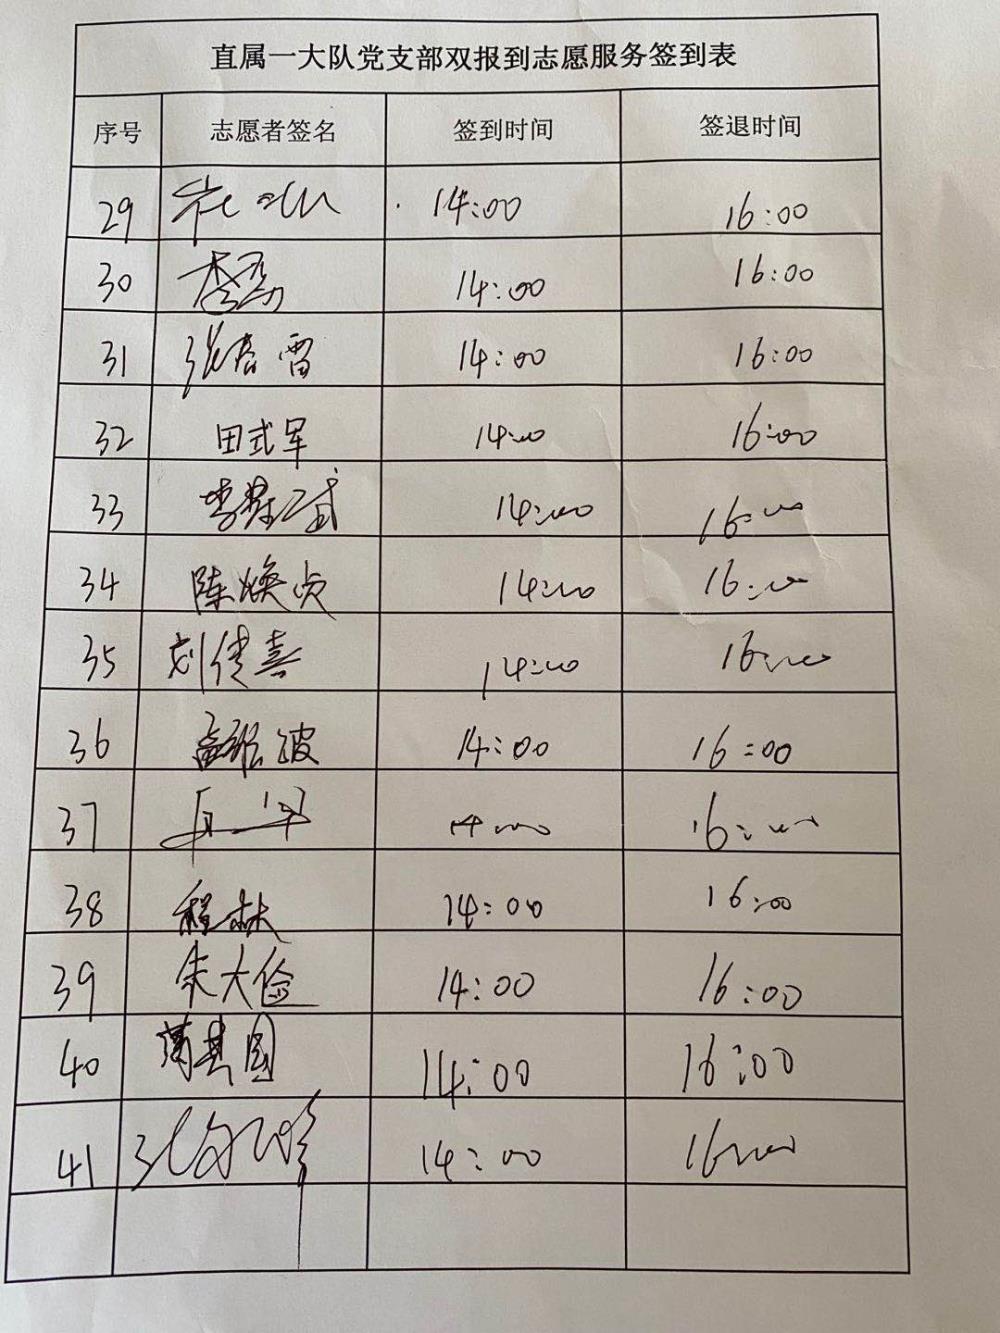 直属一大队党支部双报到志愿服务签到表
序号 志愿者签名 签到时间 签退时间
29 14:00 16:00
30 14:00 16:00
31 张春雷 14:00 16:00
32 田式军 14:00 16:00
33 14:00 16:00
34 陈焕贞 14:00 16:00
35 刘传喜 14:00 16:00
36 14:00 16:00
37 14:00 16:00
38 程林 14:00 16:00
39 朱大俭 14:00 16:00
40 14:00 16:00
41 14:00 16:00